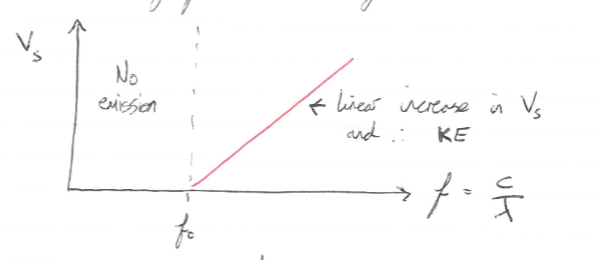 V_s
No
emission
← linear increase in V_s
and ∴ KE
f = c/λ
f_0